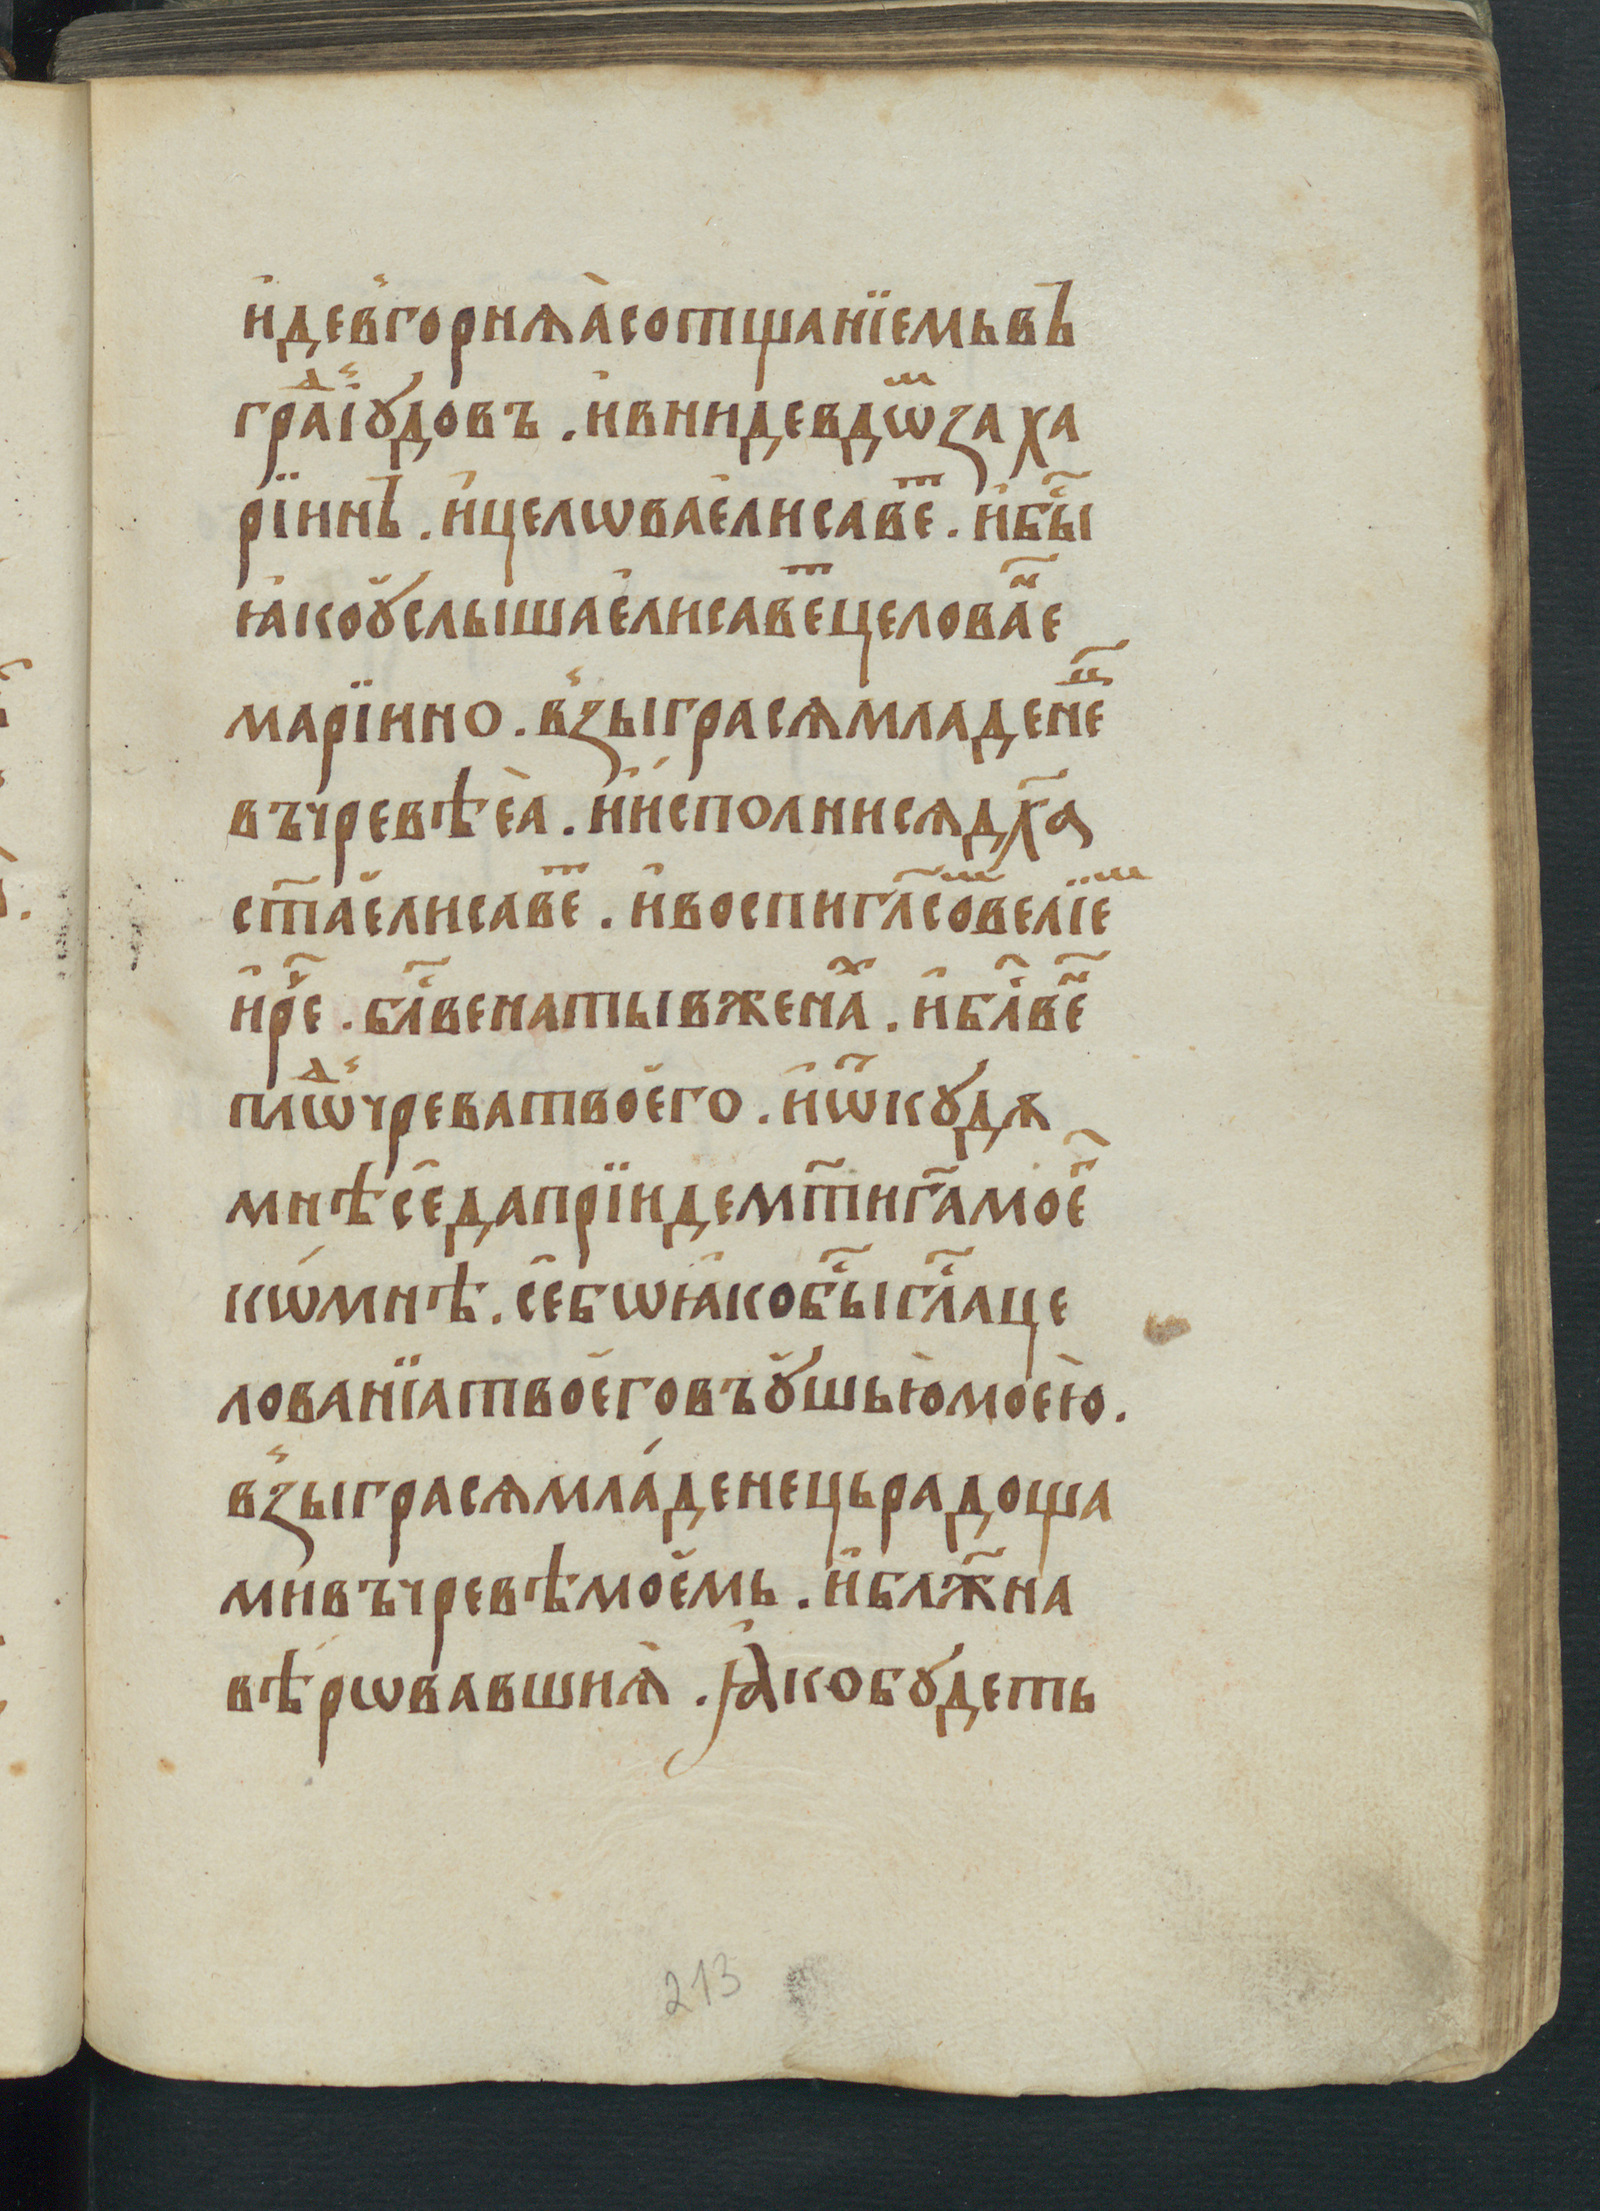 и҆девъ҆горнѧа҆сотщанїемьвъ
гра́дъі҆ꙋдовъ . и҆внидевдѡ̑мзаха
рїинъ . и҆целѡвае҆лисаве̑т . и҆бы́ⷭ҇
ꙗ҆коꙋ҆слышае҆лисаве̑тцелова́нⷷе
марїино . въ҆зыграсѧмладене́ц҃
въчревѣеа҆ . и҆и҆сполнисѧдх҃а
ст҃ае҆лисаве̑т . и҆воспигла́сомве́лїем
и҆рⷱ҇е . бл҃венатывжена́х . и҆бл҃ве́н
плѡдъчреватвоего . и҆ѿкꙋдѧ
мнѣсе҆дапрїидемт҃иг҃амое҆г
кѡмнѣ . се҆бѡꙗ҆кобы́ⷭ҇гл҃аце
лованїатвоеговъꙋ҆шьюмоею .
въ҆зыграсѧмла́денецьрадоща
мивъчревѣмоемь . и҆блж҃на
вѣ́рѡвавшиѧ҆ . ꙗ҆кобꙋдеть
213